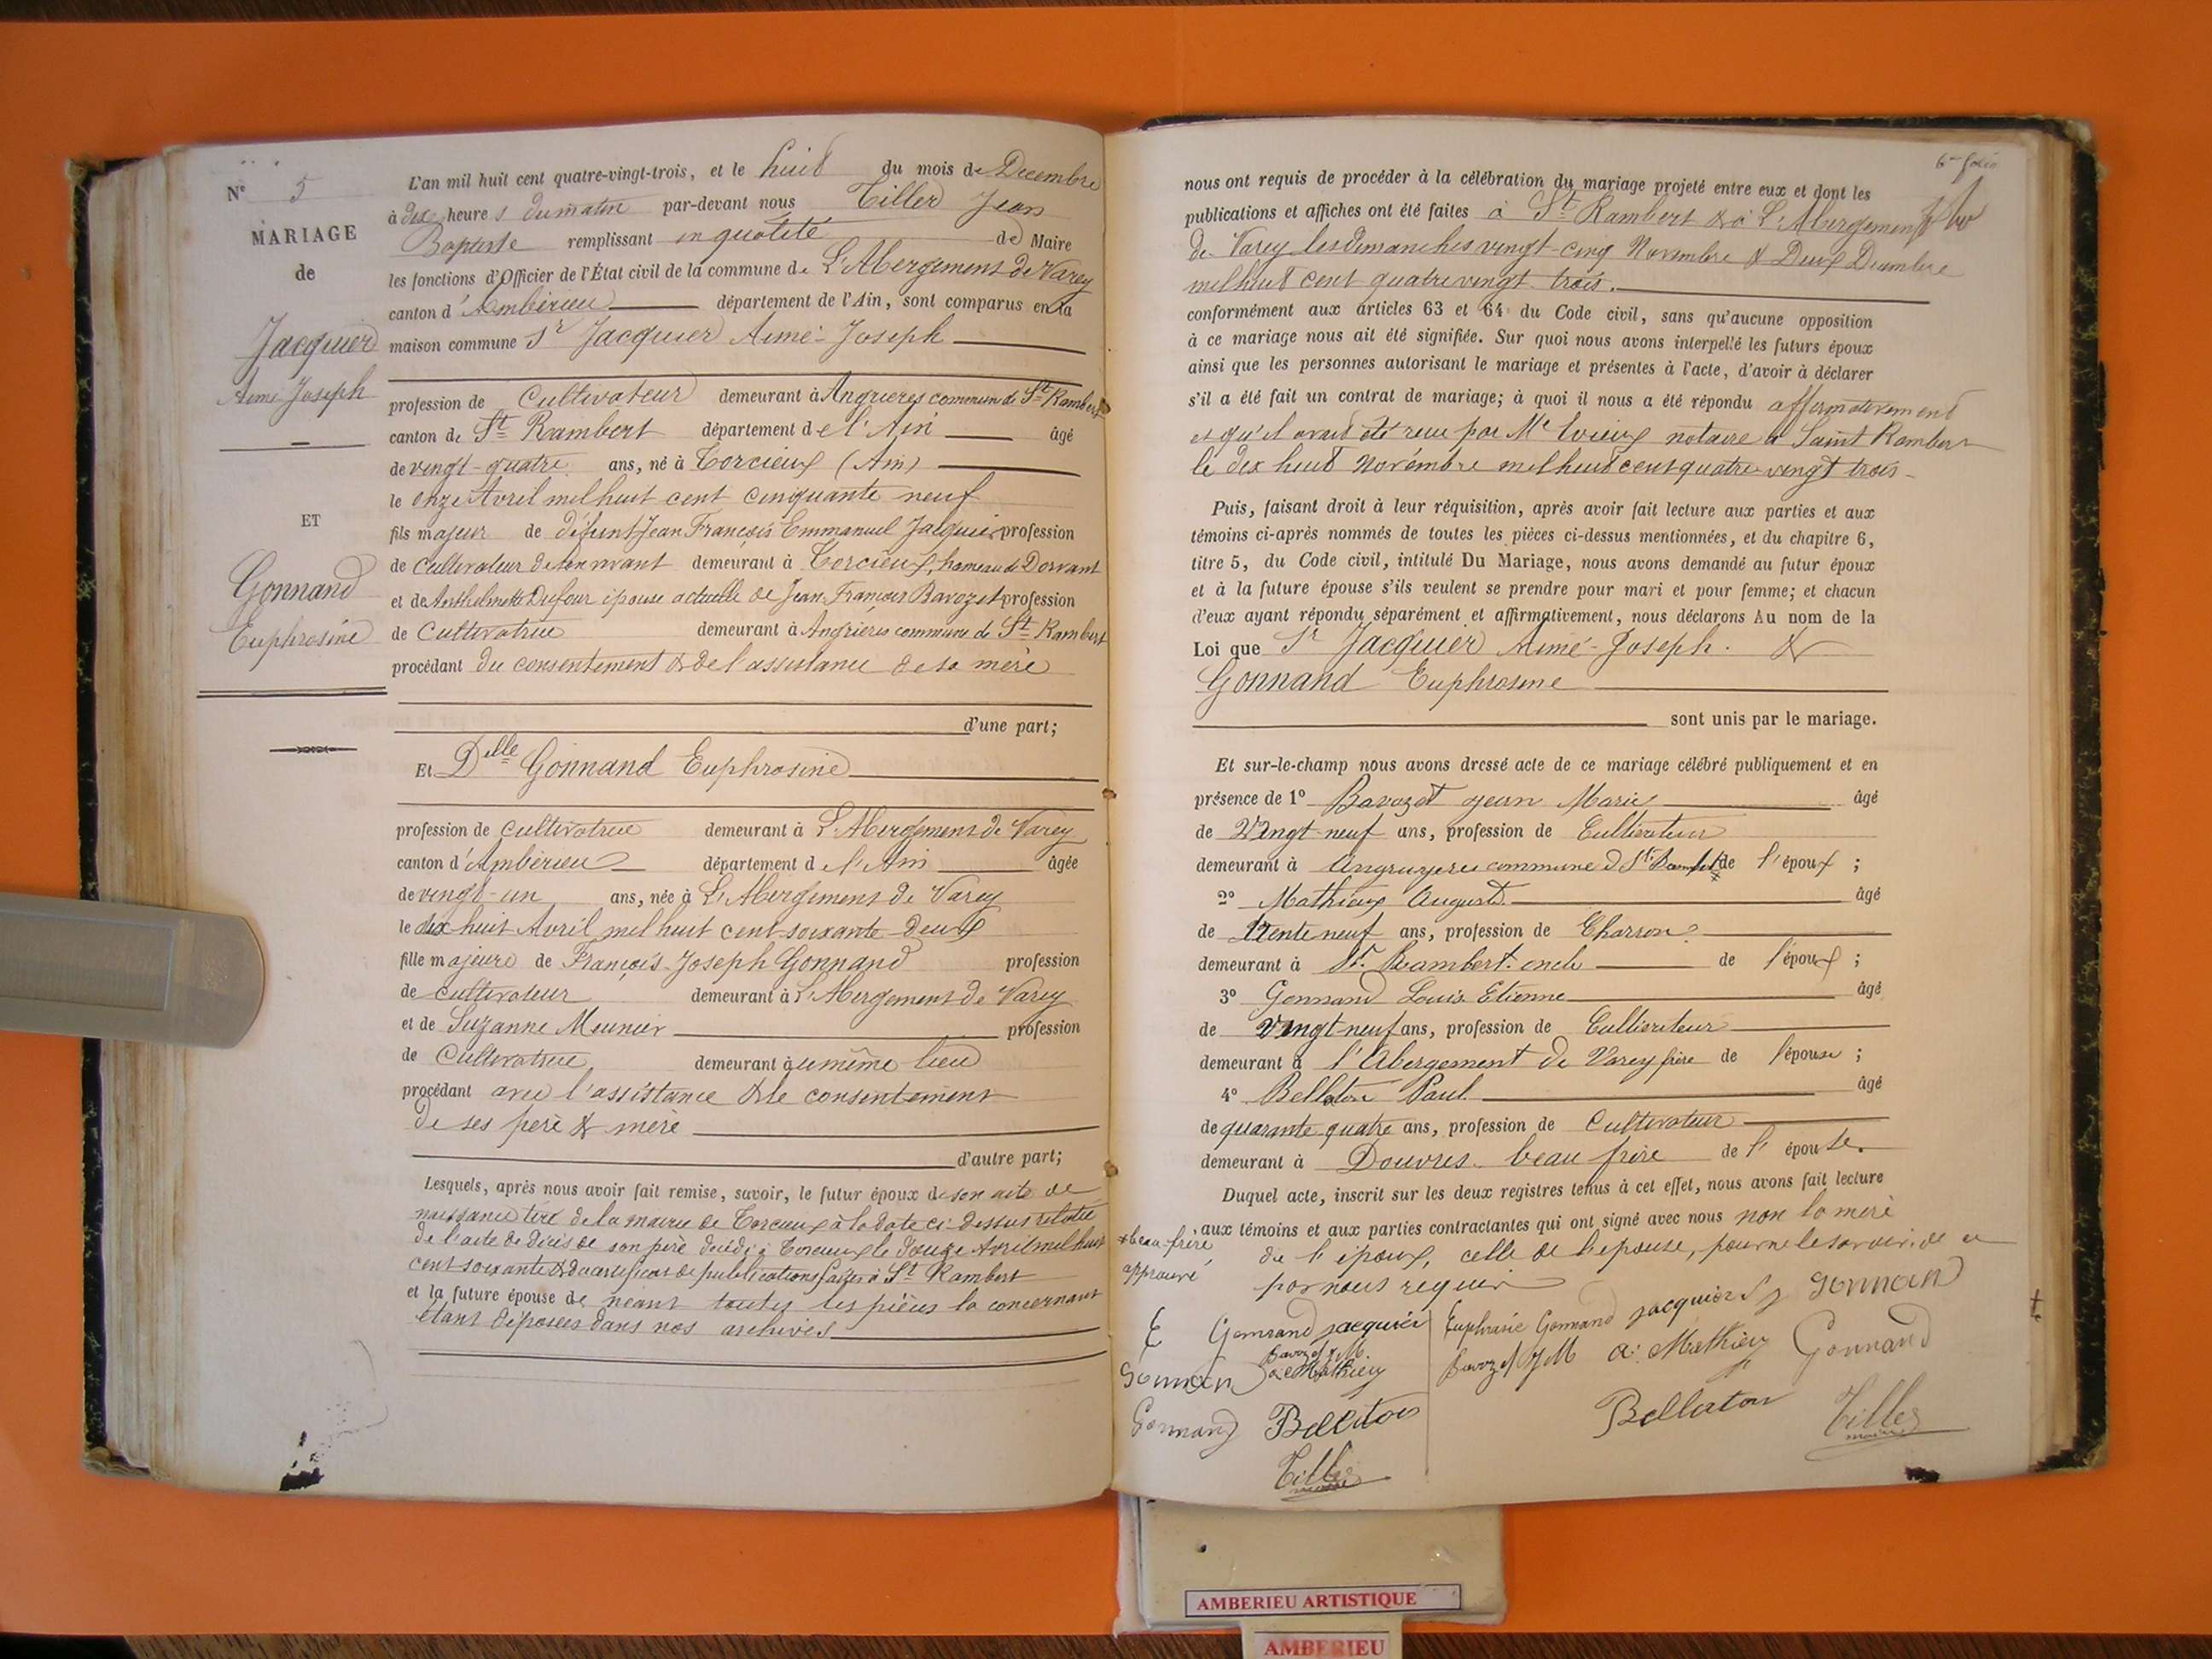 Nº 5
MARIAGE
de
Jacquier
Aimé Joseph
ET
Gonnand
Euphrosine
L'an mil huit cent quatre-vingt-trois, et le huit du mois de Decembre
à dix heures du matin par-devant nous Tiller Jean
Baptiste remplissant en qualité de Maire
les fonctions d'Officier de l'État civil de la commune de L'Abergement de Varey
canton d'Ambérieu département de l'Ain, sont comparus en la
maison commune Sr Jacquier Aimé-Joseph
profession de Cultivateur demeurant à Angrieres commune de St Rambert
canton de St Rambert département de l'Ain âgé
de vingt-quatre ans, né à Torcieux (Ain)
le onze Avril mil huit cent cinquante neuf
fils majeur de défunt Jean François Emmanuel Jacquier profession
de cultivateur de son vivant demeurant à Torcieux, hameau de Dorvant
et de Anthelmette Dufour épouse actuelle de Jean François Bavozet profession
de Cultivatrice demeurant à Angrieres commune de St Rambert
procédant du consentement & de l'assistance de sa mère
d'une part;
Et Delle Gonnand Euphrosine
profession de cultivatrice demeurant à L'Abergement de Varey
canton d'Ambérieu département de l'Ain âgée
de vingt-un ans, née à L'Abergement de Varey
le dix huit Avril mil huit cent soixante deux
fille majeure de François-Joseph Gonnand profession
de cultivateur demeurant à L'Abergement de Varey
et de Suzanne Meunier profession
de Cultivatrice demeurant au même lieu
procédant avec l'assistance & le consentement
de ses père & mère
d'autre part;
Lesquels, après nous avoir fait remise, savoir, le futur époux de son acte de
naissance tiré de la mairie de Torcieux à la date ci-dessus relatée
de l'acte de décès de son père décédé à Torcieux le douze Avril mil huit
cent soixante & du certificat de publications faites à St Rambert
et la future épouse de néant toutes les pièces la concernant
étant déposées dans nos archives
6e folio
nous ont requis de procéder à la célébration du mariage projeté entre eux et dont les
publications et affiches ont été faites à St Rambert & à L'Abergement
de Varey les dimanches vingt-cinq Novembre & Deux Decembre
mil huit cent quatre vingt trois.
conformément aux articles 63 et 64 du Code civil, sans qu'aucune opposition
à ce mariage nous ait été signifiée. Sur quoi nous avons interpellé les futurs époux
ainsi que les personnes autorisant le mariage et présentes à l'acte, d'avoir à déclarer
s'il a été fait un contrat de mariage; à quoi il nous a été répondu affirmativement
et qu'il avait été reçu par Me notaire à Saint Rambert
le dix huit Novembre mil huit cent quatre-vingt trois
Puis, faisant droit à leur réquisition, après avoir fait lecture aux parties et aux
témoins ci-après nommés de toutes les pièces ci-dessus mentionnées, et du chapitre 6,
titre 5, du Code civil, intitulé Du Mariage, nous avons demandé au futur époux
et à la future épouse s'ils veulent se prendre pour mari et pour femme; et chacun
d'eux ayant répondu séparément et affirmativement, nous déclarons Au nom de la
Loi que Sr Jacquier Aimé-Joseph. &
Gonnand Euphrosine
sont unis par le mariage.
Et sur-le-champ nous avons dressé acte de ce mariage célébré publiquement et en
présence de 1º Bavozet Jean Marie âgé
de Vingt neuf ans, profession de Cultivateur
demeurant à Angruyeres commune d St Rambert de l'époux ;
2º Mathieux Auguste âgé
de Trente neuf ans, profession de Charron
demeurant à St. Rambert. oncle de l'époux ;
3º Gonnand Louis Etienne âgé
de Vingt-neuf ans, profession de Cultivateur
demeurant à l'Abergement de Varey frère de l'épouse ;
4º Bellaton Paul âgé
de quarante quatre ans, profession de Cultivateur
demeurant à Douvres. beau frère de l'épouse.
Duquel acte, inscrit sur les deux registres tenus à cet effet, nous avons fait lecture
aux témoins et aux parties contractantes qui ont signé avec nous non la mère
× beau frère
approuvé
de l'époux, celle de l'épouse, pour ne le savoir. de ce
par nous requis
E Gonnand jacquier
Bavozet J M.
Gonnan a Mathieu
Gonnand Bellaton
Tiller
maire
Euphrasie Gonnand jacquier Gonnand
Bavozet J M a. Mathieu Gonnand
Bellaton Tiller
maire
AMBERIEU ARTISTIQUE
AMBERIEU